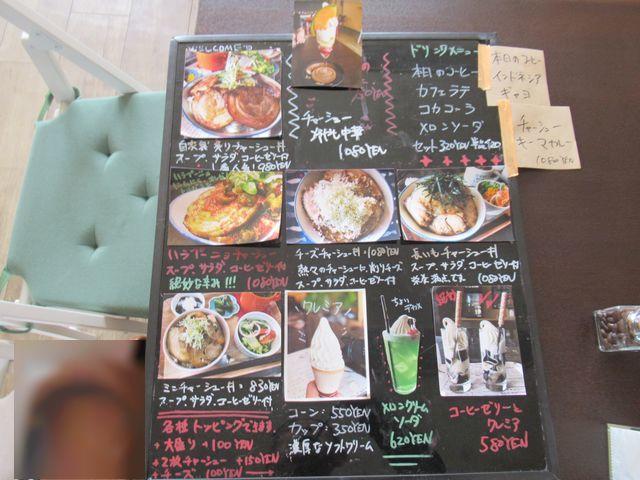 WELCOME
自家製 炙りチャーシュー丼
スープ、サラダ、コーヒーゼリー付
1番人気! 980YEN
チャーシュー
冷し中華
1080YEN
ドリンクメニュー
本日のコーヒー
カフェラテ
コカコーラ
メロンソーダ
セット 320YEN
本日のコーヒー
インドネシア
ガヨ
チャーシュー
キーマカレー
1080YEN
ハラペーニョチャーシュー
スープ、サラダ、コーヒーゼリー付
絶妙な辛み!!! 1080YEN
チーズチャーシュー丼:1080YEN
熱々のチャーシューに、削りチーズ
スープ、サラダ、コーヒーゼリー付
長いもチャーシュー丼
スープ、サラダ、コーヒーゼリー付
1080YEN
ミニチャーシュー丼:830YEN
スープ、サラダ、コーヒーゼリー付
各種トッピングできます
+大盛り +100YEN
+2枚チャーシュー +150YEN
+チーズ 100YEN
クレミア
コーン: 550YEN
カップ: 350YEN
濃厚なソフトクリーム
メロンクリーム
ソーダ
620YEN
コーヒーゼリーと
クレミア
580YEN